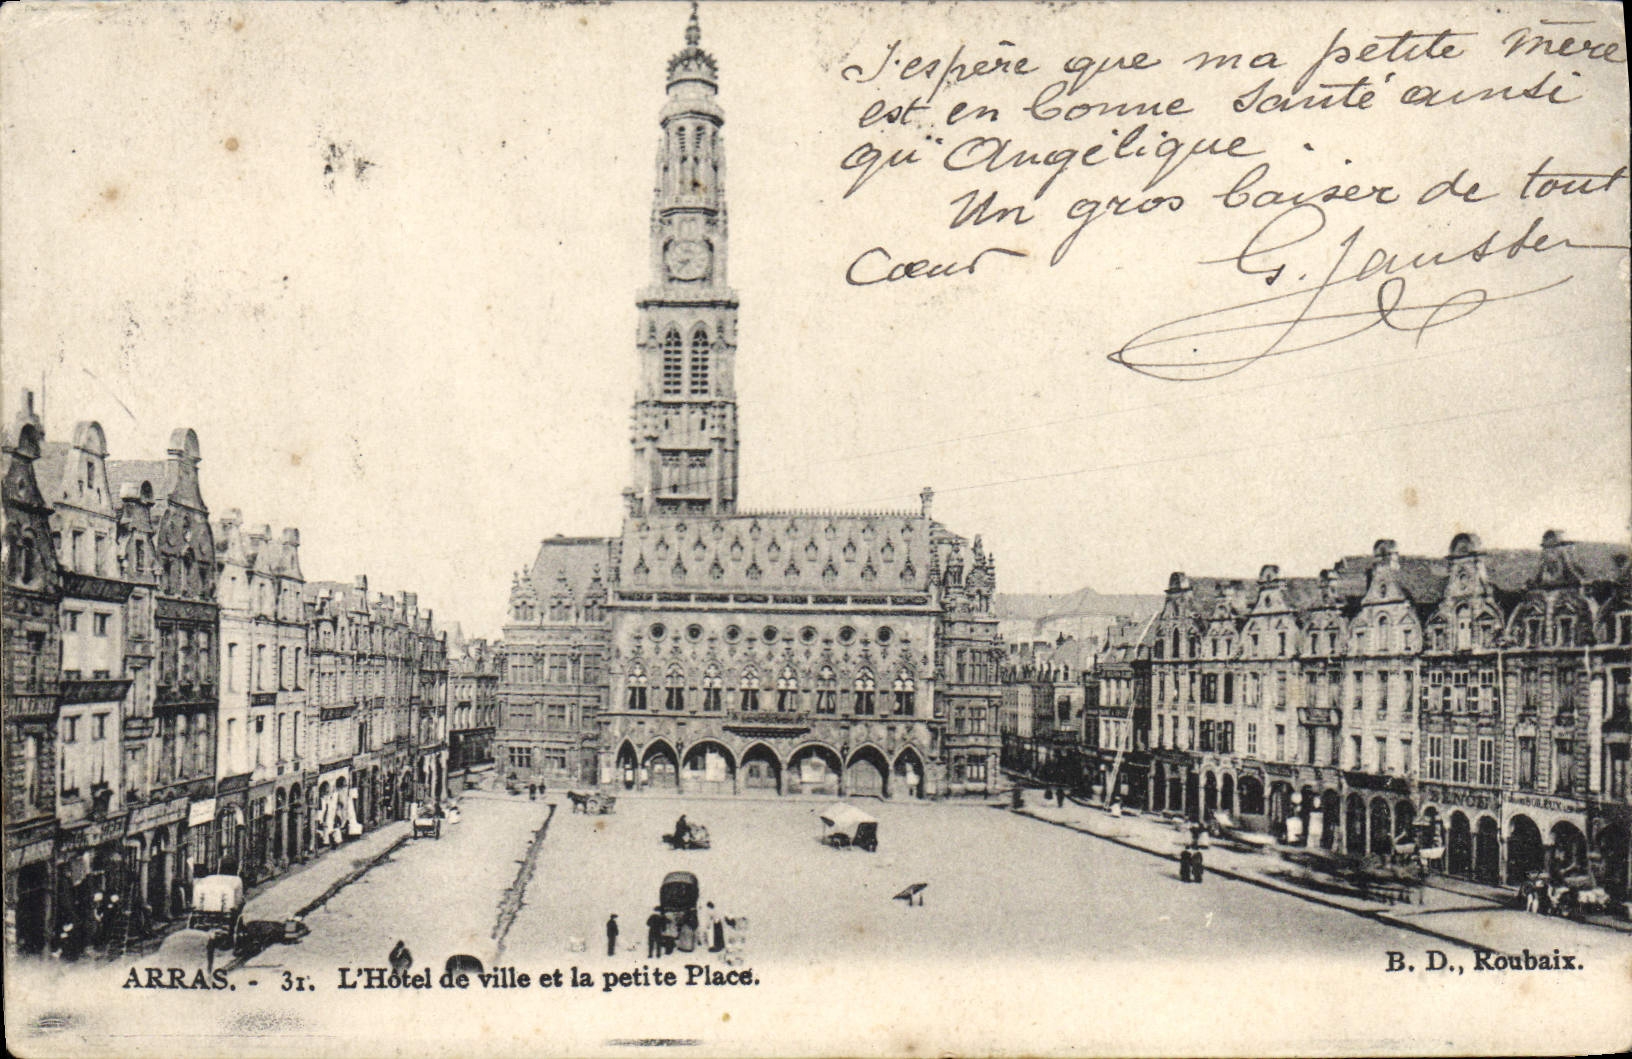 J'espère que ma petite mère
est en bonne santé ainsi
qu'Angélique.
Un gros baiser de tout
Cœur
G. Janssen
ARRAS. - 31. L'Hôtel de ville et la petite Place.
B. D., Roubaix.